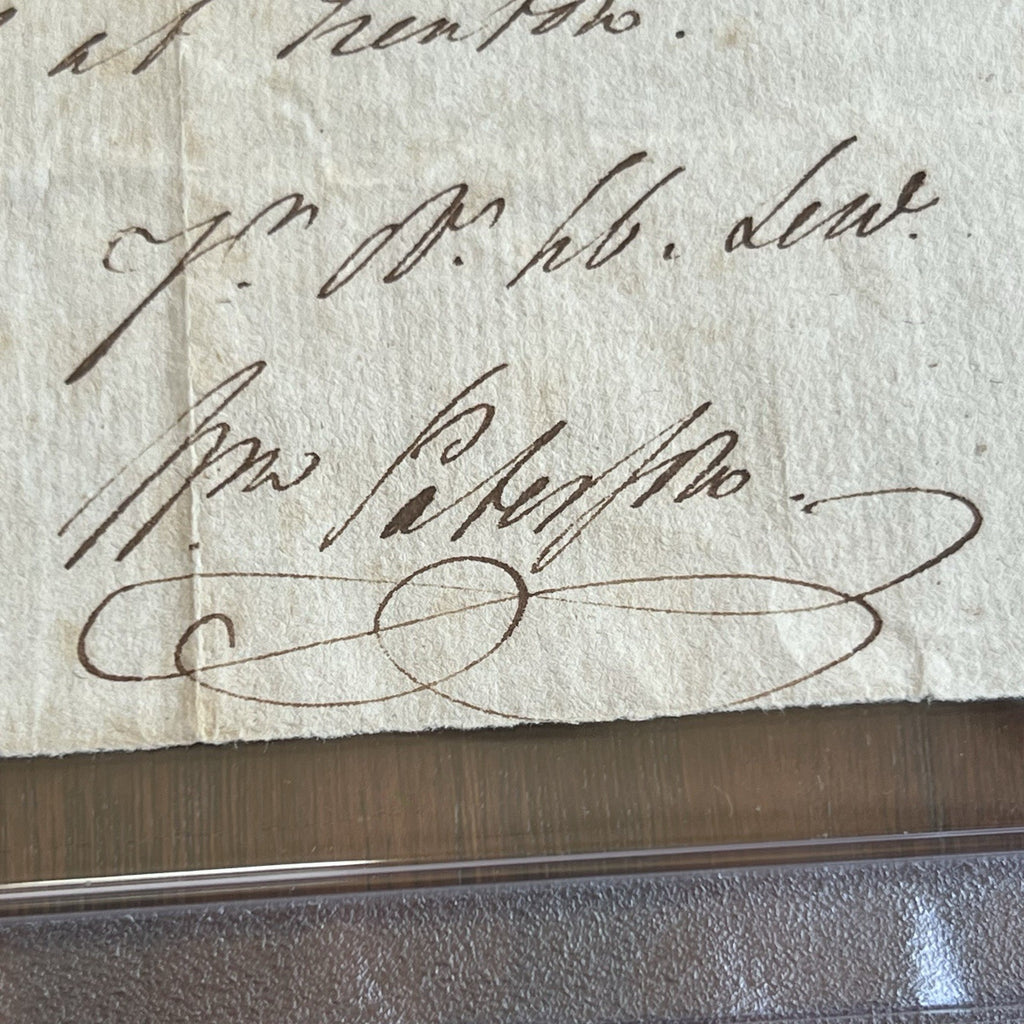 at Trenton.
Yr. Ob. hb. Serv.
Wm. Paterson.